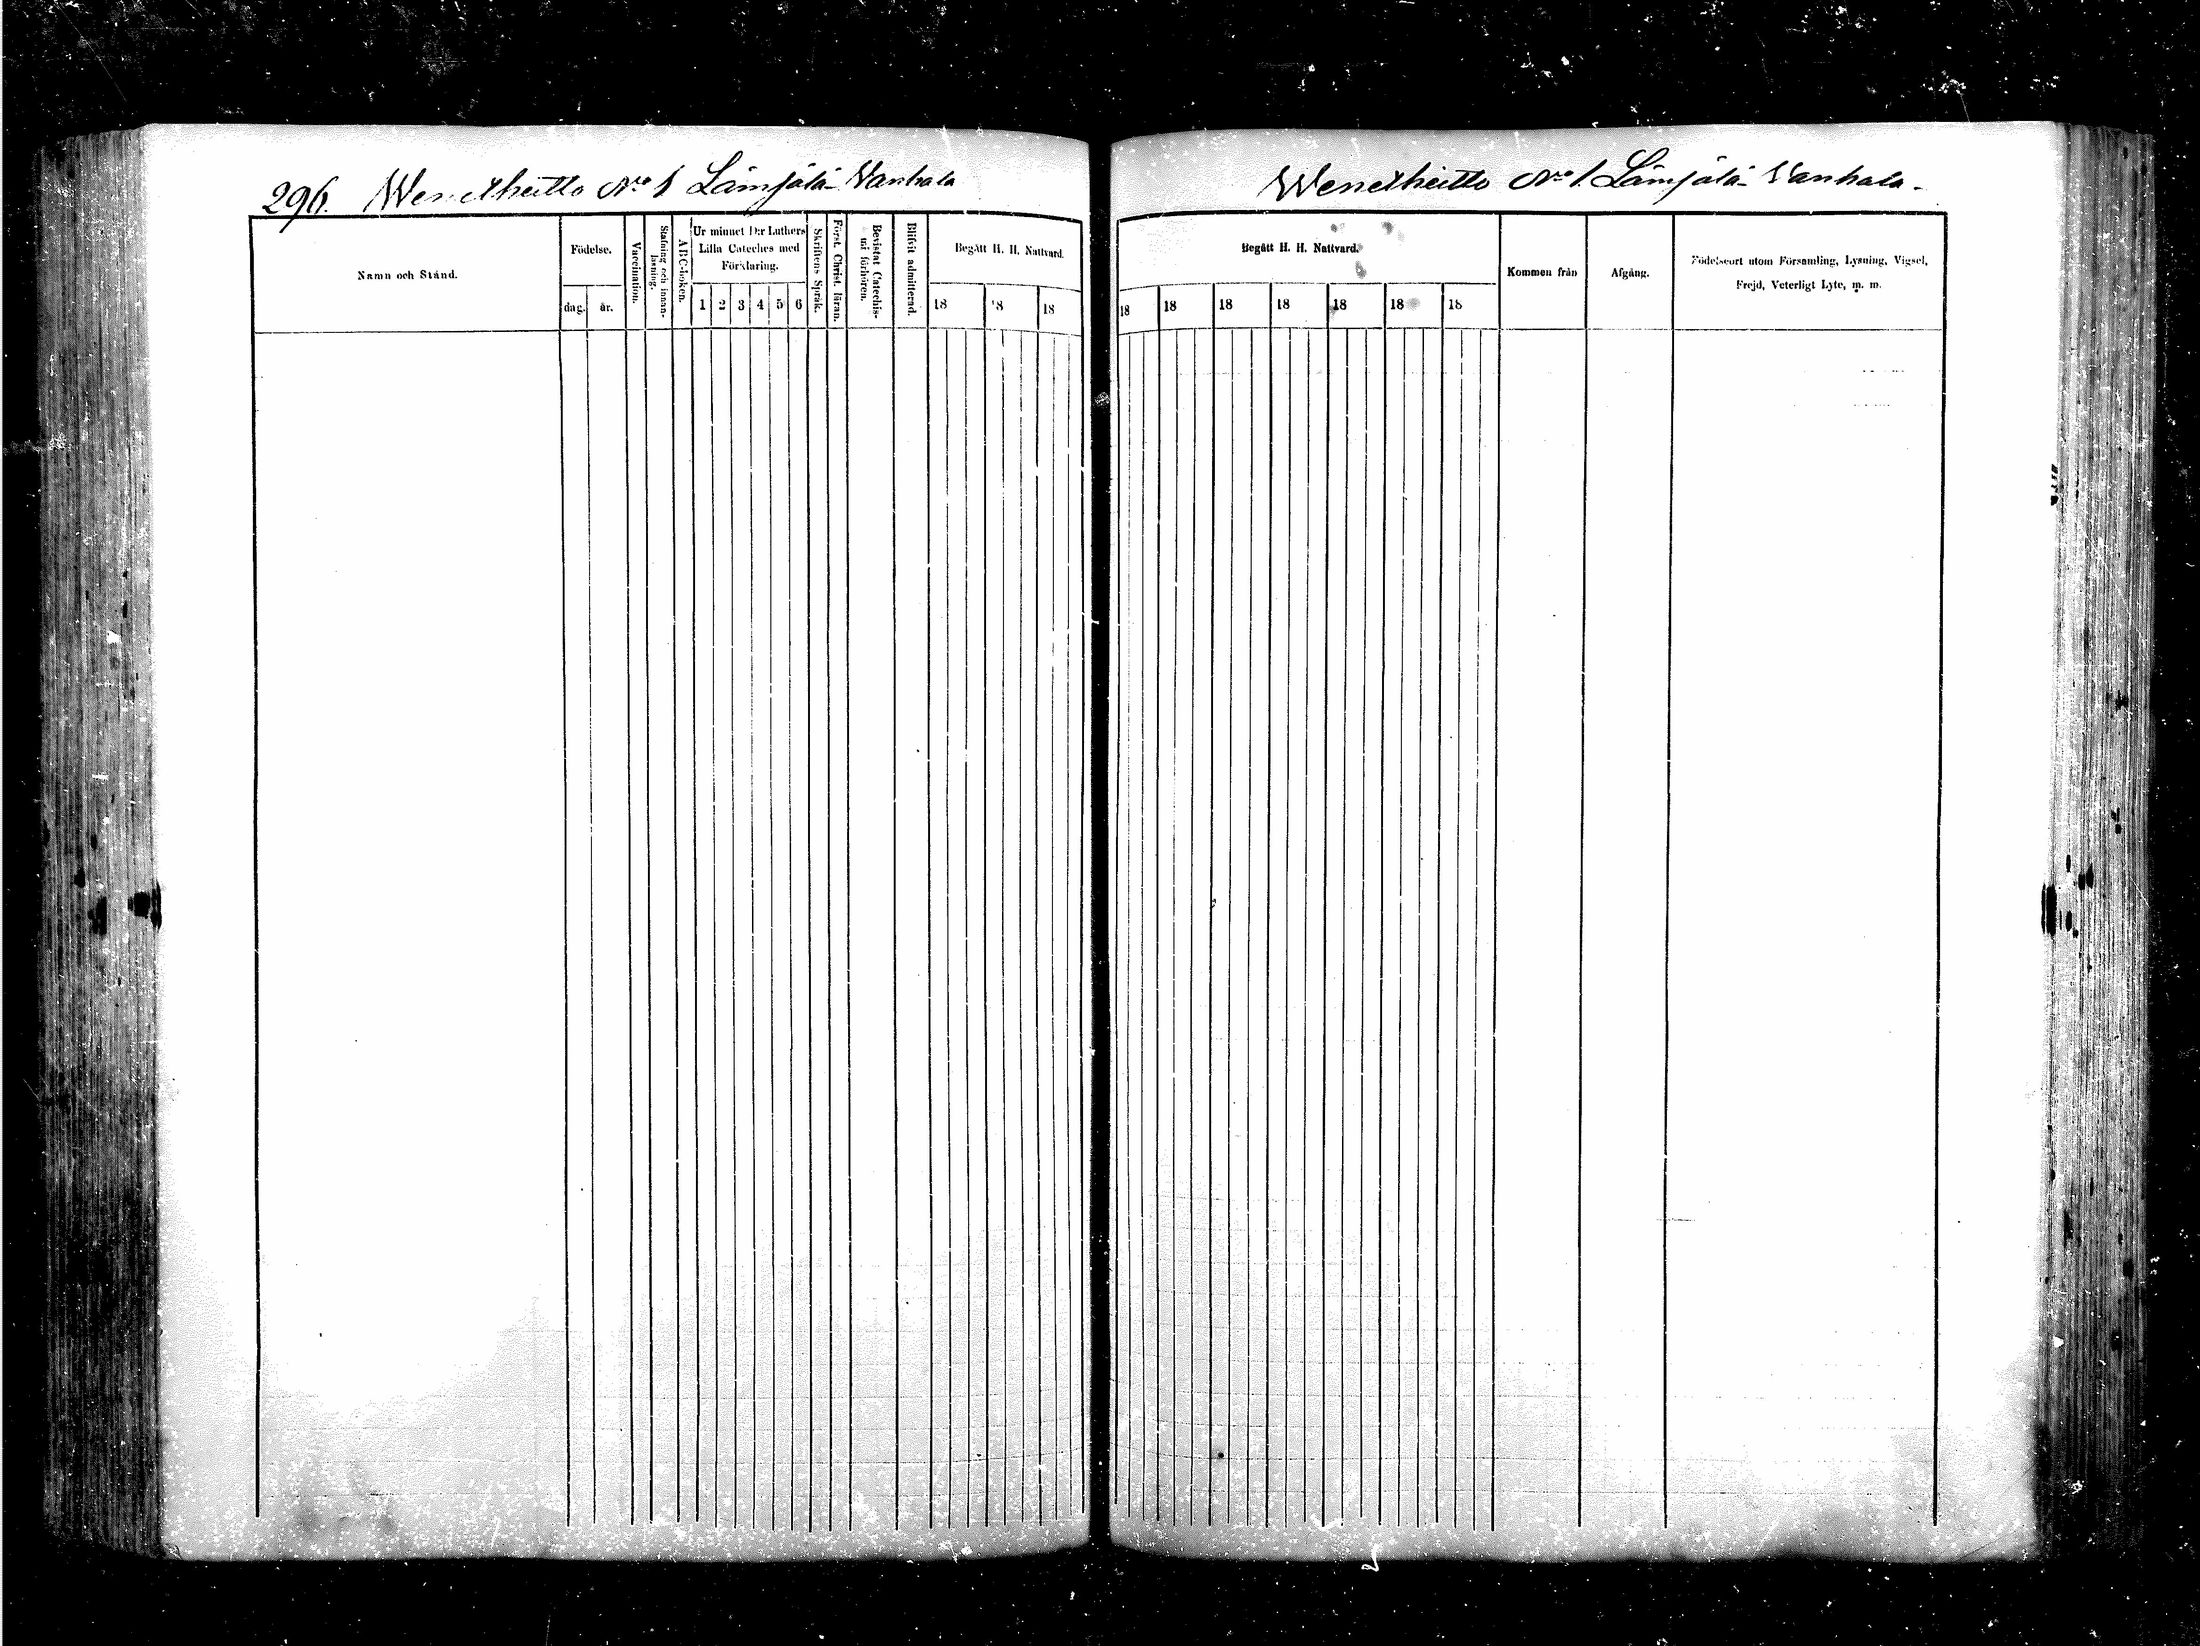 296. Wenetheitto No 1 Lämsälä-Vanhala
Namn och Stånd.
Födelse.
dag.
år.
Vaccination.
Stafning och innan-
läsning.
ABC-boken.
Ur minnet D:r Luthers
Lilla Cateches med
Förklaring.
1 2 3 4 5 6
Skriftens Språk.
Först. Christ. läran.
Bevistat Catechis-
mi förhören.
Blifvit admitterad.
Begått H. H. Nattvard.
18 18 18
Wenetheitto No 1. Lämsälä-Vanhala-
Begått H. H. Nattvard.
18 18 18 18 18 18 18
Kommen från
Afgång.
Födelseort utom Församling, Lysning, Vigsel,
Frejd, Veterligt Lyte, m. m.